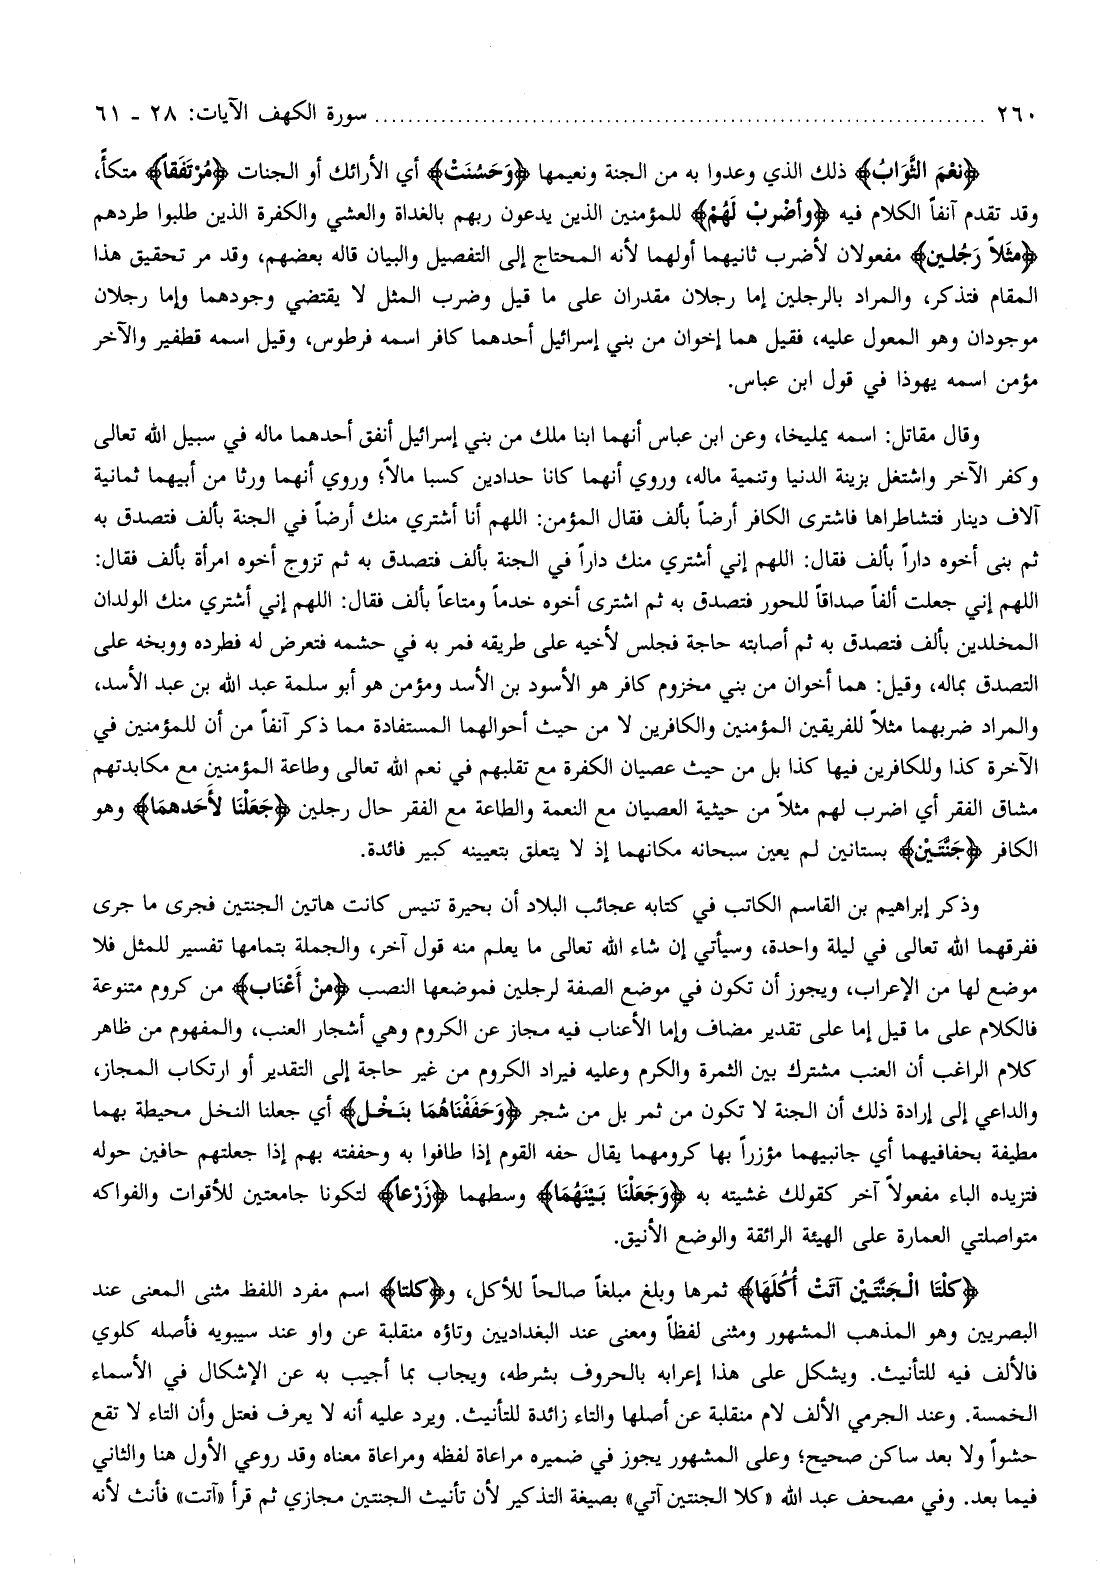 ٢٦٠ ........................................................................ سورة الكهف الآيات: ٢٨ ـ ٦١
﴿نعْمَ الثَّوَابُ﴾ ذلك الذي وعدوا به من الجنة ونعيمها ﴿وَحَسُنَتْ﴾ أي الأرائك أو الجنات ﴿مُرْتَفَقاً﴾ متكأً،
وقد تقدم آنفاً الكلام فيه ﴿وأضْربْ لَهُمْ﴾ للمؤمنين الذين يدعون ربهم بالغداة والعشي والكفرة الذين طلبوا طردهم
﴿مثَلاً رَجُلين﴾ مفعولان لأضرب ثانيهما أولهما لأنه المحتاج إلى التفصيل والبيان قاله بعضهم، وقد مر تحقيق هذا
المقام فتذكر، والمراد بالرجلين إما رجلان مقدران على ما قيل وضرب المثل لا يقتضي وجودهما وإما رجلان
موجودان وهو المعول عليه، فقيل هما إخوان من بني إسرائيل أحدهما كافر اسمه فرطوس، وقيل اسمه قطفير والآخر
مؤمن اسمه يهوذا في قول ابن عباس.
وقال مقاتل: اسمه يمليخا، وعن ابن عباس أنهما ابنا ملك من بني إسرائيل أنفق أحدهما ماله في سبيل الله تعالى
وكفر الآخر واشتغل بزينة الدنيا وتنمية ماله، وروي أنهما كانا حدادين كسبا مالاً؛ وروي أنهما ورثا من أبيهما ثمانية
آلاف دينار فتشاطراها فاشترى الكافر أرضاً بألف فقال المؤمن: اللهم أنا أشتري منك أرضاً في الجنة بألف فتصدق به
ثم بنى أخوه داراً بألف فقال: اللهم إني أشتري منك داراً في الجنة بألف فتصدق به ثم تزوج أخوه امرأة بألف فقال:
اللهم إني جعلت ألفاً صداقاً للحور فتصدق به ثم اشترى أخوه خدماً ومتاعاً بألف فقال: اللهم إني أشتري منك الولدان
المخلدين بألف فتصدق به ثم أصابته حاجة فجلس لأخيه على طريقه فمر به في حشمه فتعرض له فطرده ووبخه على
التصدق بماله، وقيل: هما أخوان من بني مخزوم كافر هو الأسود بن الأسد ومؤمن هو أبو سلمة عبد الله بن عبد الأسد،
والمراد ضربهما مثلاً للفريقين المؤمنين والكافرين لا من حيث أحوالهما المستفادة مما ذكر آنفاً من أن للمؤمنين في
الآخرة كذا وللكافرين فيها كذا بل من حيث عصيان الكفرة مع تقلبهم في نعم الله تعالى وطاعة المؤمنين مع مكابدتهم
مشاق الفقر أي اضرب لهم مثلاً من حيثية العصيان مع النعمة والطاعة مع الفقر حال رجلين ﴿جَعَلْنَا لأَحَدهمَا﴾ وهو
الكافر ﴿جَنَّتَيْن﴾ بستانين لم يعين سبحانه مكانهما إذ لا يتعلق بتعيينه كبير فائدة.
وذكر إبراهيم بن القاسم الكاتب في كتابه عجائب البلاد أن بحيرة تنيس كانت هاتين الجنتين فجرى ما جرى
ففرقهما الله تعالى في ليلة واحدة، وسيأتي إن شاء الله تعالى ما يعلم منه قول آخر، والجملة بتمامها تفسير للمثل فلا
موضع لها من الإعراب، ويجوز أن تكون في موضع الصفة لرجلين فموضعها النصب ﴿منْ أَعْنَاب﴾ من كروم متنوعة
فالكلام على ما قيل إما على تقدير مضاف وإما الأعناب فيه مجاز عن الكروم وهي أشجار العنب، والمفهوم من ظاهر
كلام الراغب أن العنب مشترك بين الثمرة والكرم وعليه فيراد الكروم من غير حاجة إلى التقدير أو ارتكاب المجاز،
والداعي إلى إرادة ذلك أن الجنة لا تكون من ثمر بل من شجر ﴿وَحَفَفْنَاهُمَا بنَخْل﴾ أي جعلنا النخل محيطة بهما
مطيفة بحفافيهما أي جانبيهما مؤزراً بها كرومهما يقال حفه القوم إذا طافوا به وحففته بهم إذا جعلتهم حافين حوله
فتزيده الباء مفعولاً آخر كقولك غشيته به ﴿وَجَعَلْنَا بَيْنَهُمَا﴾ وسطهما ﴿زَرْعاً﴾ لتكونا جامعتين للأقوات والفواكه
متواصلتي العمارة على الهيئة الرائقة والوضع الأنيق.
﴿كلْتَا الْجَنَّتَيْن آتَتْ أُكُلَهَا﴾ ثمرها وبلغ مبلغاً صالحاً للأكل، و﴿كلتا﴾ اسم مفرد اللفظ مثنى المعنى عند
البصريين وهو المذهب المشهور ومثنى لفظاً ومعنى عند البغداديين وتاؤه منقلبة عن واو عند سيبويه فأصله كلوي
فالألف فيه للتأنيث. ويشكل على هذا إعرابه بالحروف بشرطه، ويجاب بما أجيب به عن الإشكال في الأسماء
الخمسة. وعند الجرمي الألف لام منقلبة عن أصلها والتاء زائدة للتأنيث. ويرد عليه أنه لا يعرف فعتل وأن التاء لا تقع
حشواً ولا بعد ساكن صحيح؛ وعلى المشهور يجوز في ضميره مراعاة لفظه ومراعاة معناه وقد روعي الأول هنا والثاني
فيما بعد. وفي مصحف عبد الله «كلا الجنتين آتي» بصيغة التذكير لأن تأنيث الجنتين مجازي ثم قرأ «آتت» فأنث لأنه